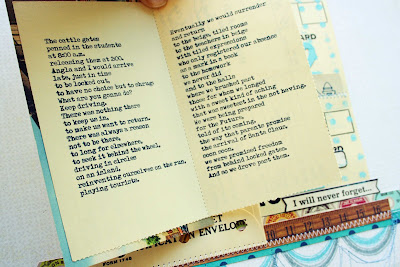 The cattle gates
penned in the students
at 8:00 a.m.
releasing them at 3:00.
Angla and I would arrive
late, just in time
to be locked out
to have no choice but to shrug
What are you gonna do?
Keep driving.
There was nothing there
to keep us in,
to make us want to return.
There was always a reason
not to be there,
to long for elsewhere,
to seek it behind the wheel,
driving in circles
on an island,
reinventing ourselves on the run,
playing tourists.
Eventually we would surrender
and return
to the beige, tiled rooms
to the teachers in beige
with tiled expressions
who only registered our absence
as a mark in a book
to the homework
we never did
and to the halls
where we brushed past
those for whom we longed
with a sweet kind of aching
that was sweetest in the not having.
We were being prepared
for the Future,
told of its coming,
the way that parents promise
the arrival of Santa Claus,
soon soon.
we were promised freedom
from behind locked gates.
And so we drove past them.
CARD
I will never forget...
ENVELOPE
FORM